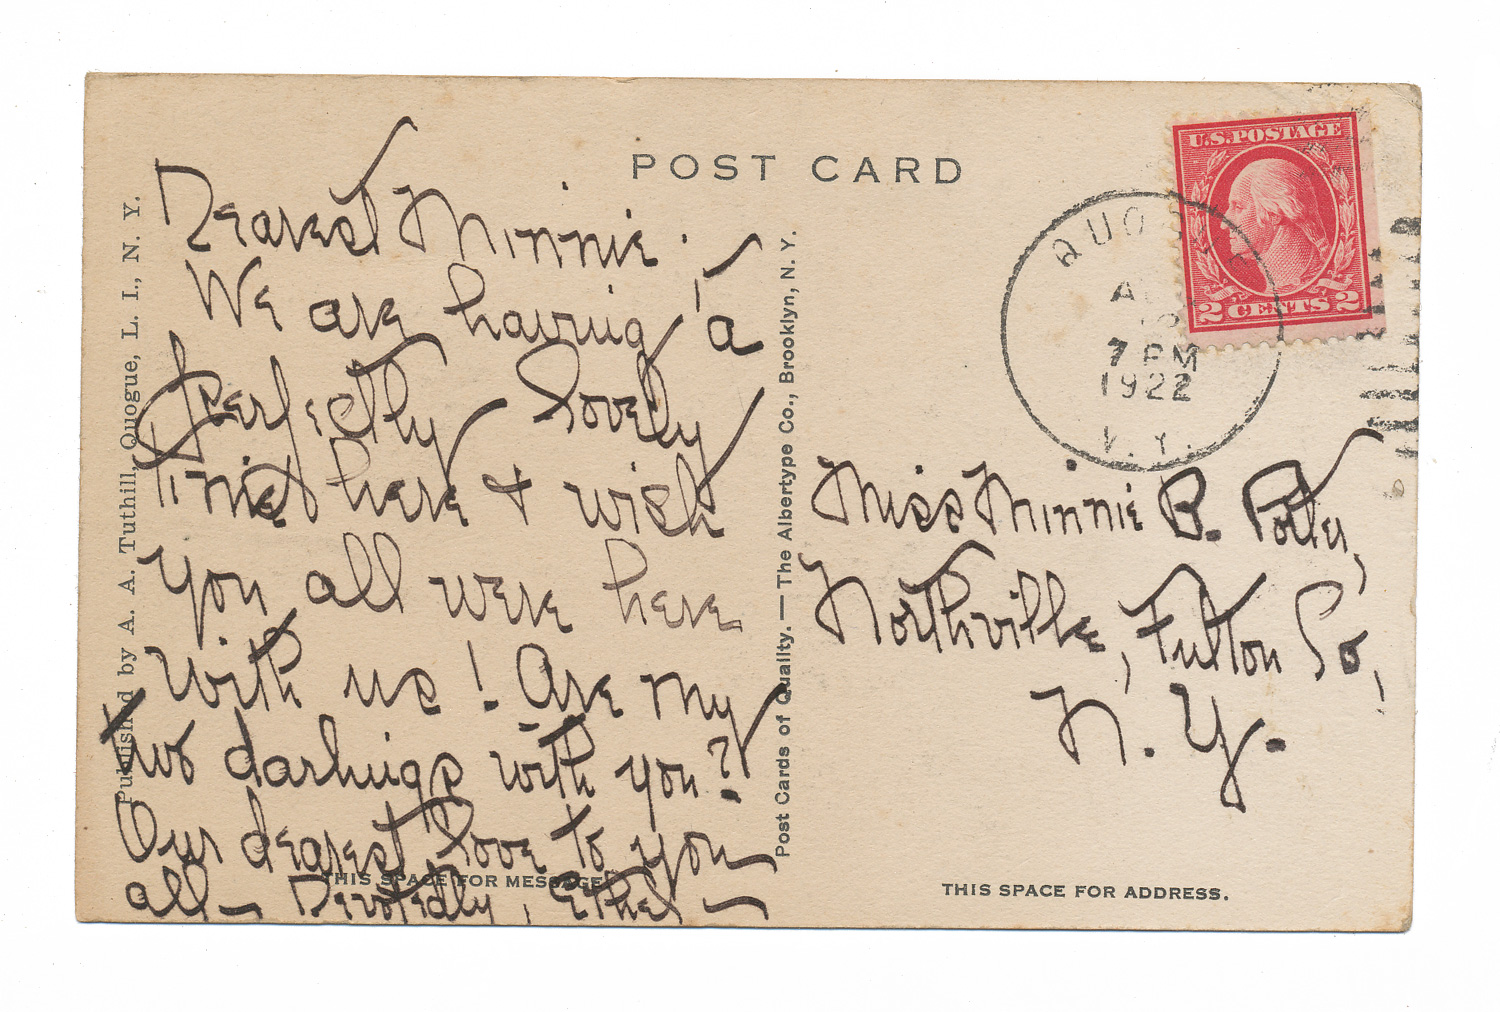 POST CARD
Dearest Minnie.
We are having a
perfectly lovely
time here + wish
you all were here
with us! Are my
two darlings with you?
Our dearest love to you
all – Devotedly, Ethel –
THIS SPACE FOR MESSAGE.
Published by A. A. Tuthill, Quogue, L. I., N. Y.
Post Cards of Quality. — The Albertype Co., Brooklyn, N. Y.
U.S. POSTAGE
2 CENTS 2
QUOGUE
7 PM
1922
N.Y.
Miss Minnie B. Porter,
Northville, Fulton Co,
N. Y.
THIS SPACE FOR ADDRESS.